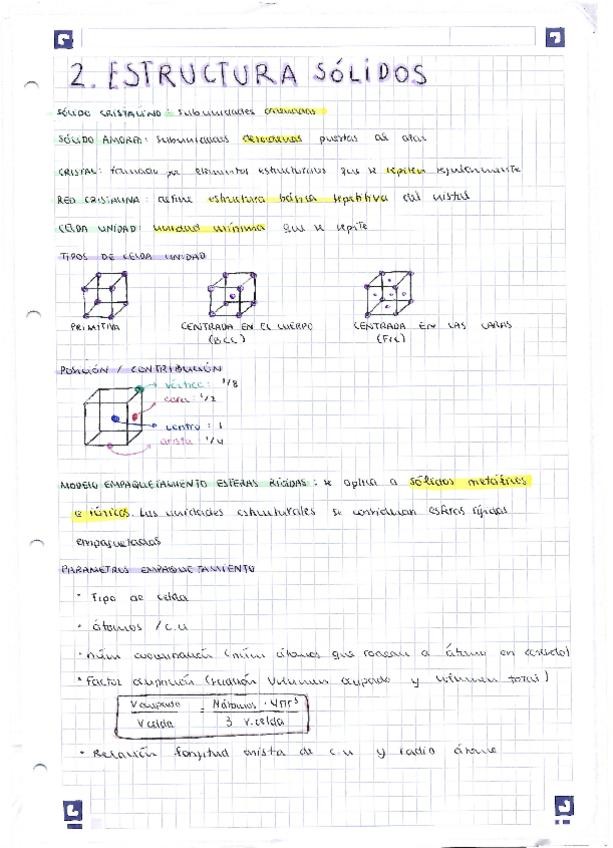 2. ESTRUCTURA SÓLIDOS
SÓLIDO CRISTALINO: subunidades ordenadas
SÓLIDO AMORFO: subunidades puestas al azar
CRISTAL: formado por elementos estructurales que se repiten regularmente
RED CRISTALINA: define estructura básica repetitiva del cristal
CELDA UNIDAD: unidad mínima que se repite
TIPOS DE CELDA UNIDAD
PRIMITIVA
CENTRADA EN EL CUERPO
(BCC)
CENTRADA EN LAS CARAS
(FCC)
POSICIÓN / CONTRIBUCIÓN
vértice: 1/8
cara: 1/2
centro: 1
arista: 1/4
MODELO EMPAQUETAMIENTO ESFERAS RÍGIDAS: se aplica a sólidos metálicos
e iónicos. Las unidades estructurales se consideran esferas rígidas
empaquetadas
PARAMETROS EMPAQUETAMIENTO
· Tipo de celda
· átomos / c.u
· núm coordinación (núm átomos que rodean a átomo en concreto)
· Factor ocupación (relación volumen ocupado y volumen total)
V ocupado / V celda = N átomos · 4πr³ / 3 V.celda
· Relación longitud arista de c.u y radio átomo